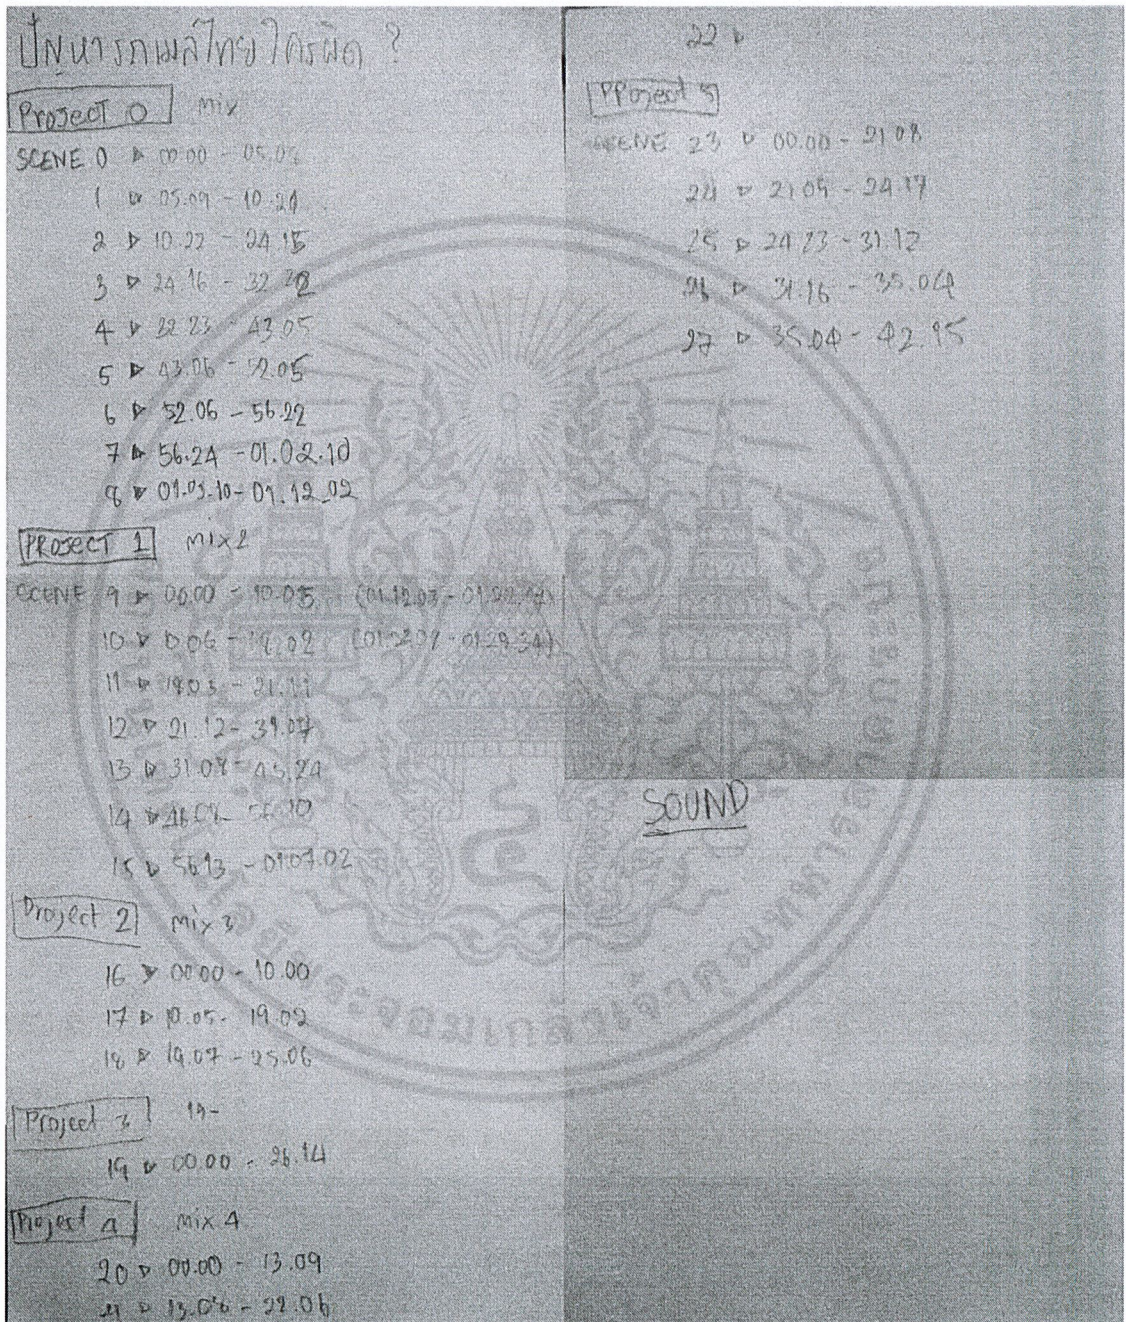 ปัญหารถเมล์ไทยใครผิด ?
PROJECT 0 mix
SCENE 0 ▷ 00.00 - 05.08
1 ▷ 05.09 - 10.21
2 ▷ 10.22 - 24.15
3 ▷ 24.16 - 32.22
4 ▷ 32.23 - 43.05
5 ▷ 43.06 - 52.05
6 ▷ 52.06 - 56.22
7 ▷ 56.24 - 01.02.10
8 ▷ 01.03.10 - 01.12.02
PROJECT 1 mix2
SCENE 9 ▷ 00.00 - 10.05
10 ▷ 10.06 - 18.02
11 ▷ 18.03 - 21.11
12 ▷ 21.12 - 31.07
13 ▷ 31.08 - 45.24
14 ▷
15 ▷ 56.13 - 01.07.02
Project 2 mix 3
16 ▷ 00.00 - 10.00
17 ▷ 10.05 - 19.02
18 ▷ 19.07 - 25.06
Project 3 19-
19 ▷ 00.00 - 26.14
Project 4 mix 4
20 ▷ 00.00 - 13.09
21 ▷ 22.06
22 ▷
PProject 5
SCENE 23 ▷ 00.00 - 21.08
24 ▷ 21.09 - 24.17
25 ▷ 24.23 - 31.12
26 ▷ 31.16 - 35.04
27 ▷ 35.04 - 42.15
SOUND